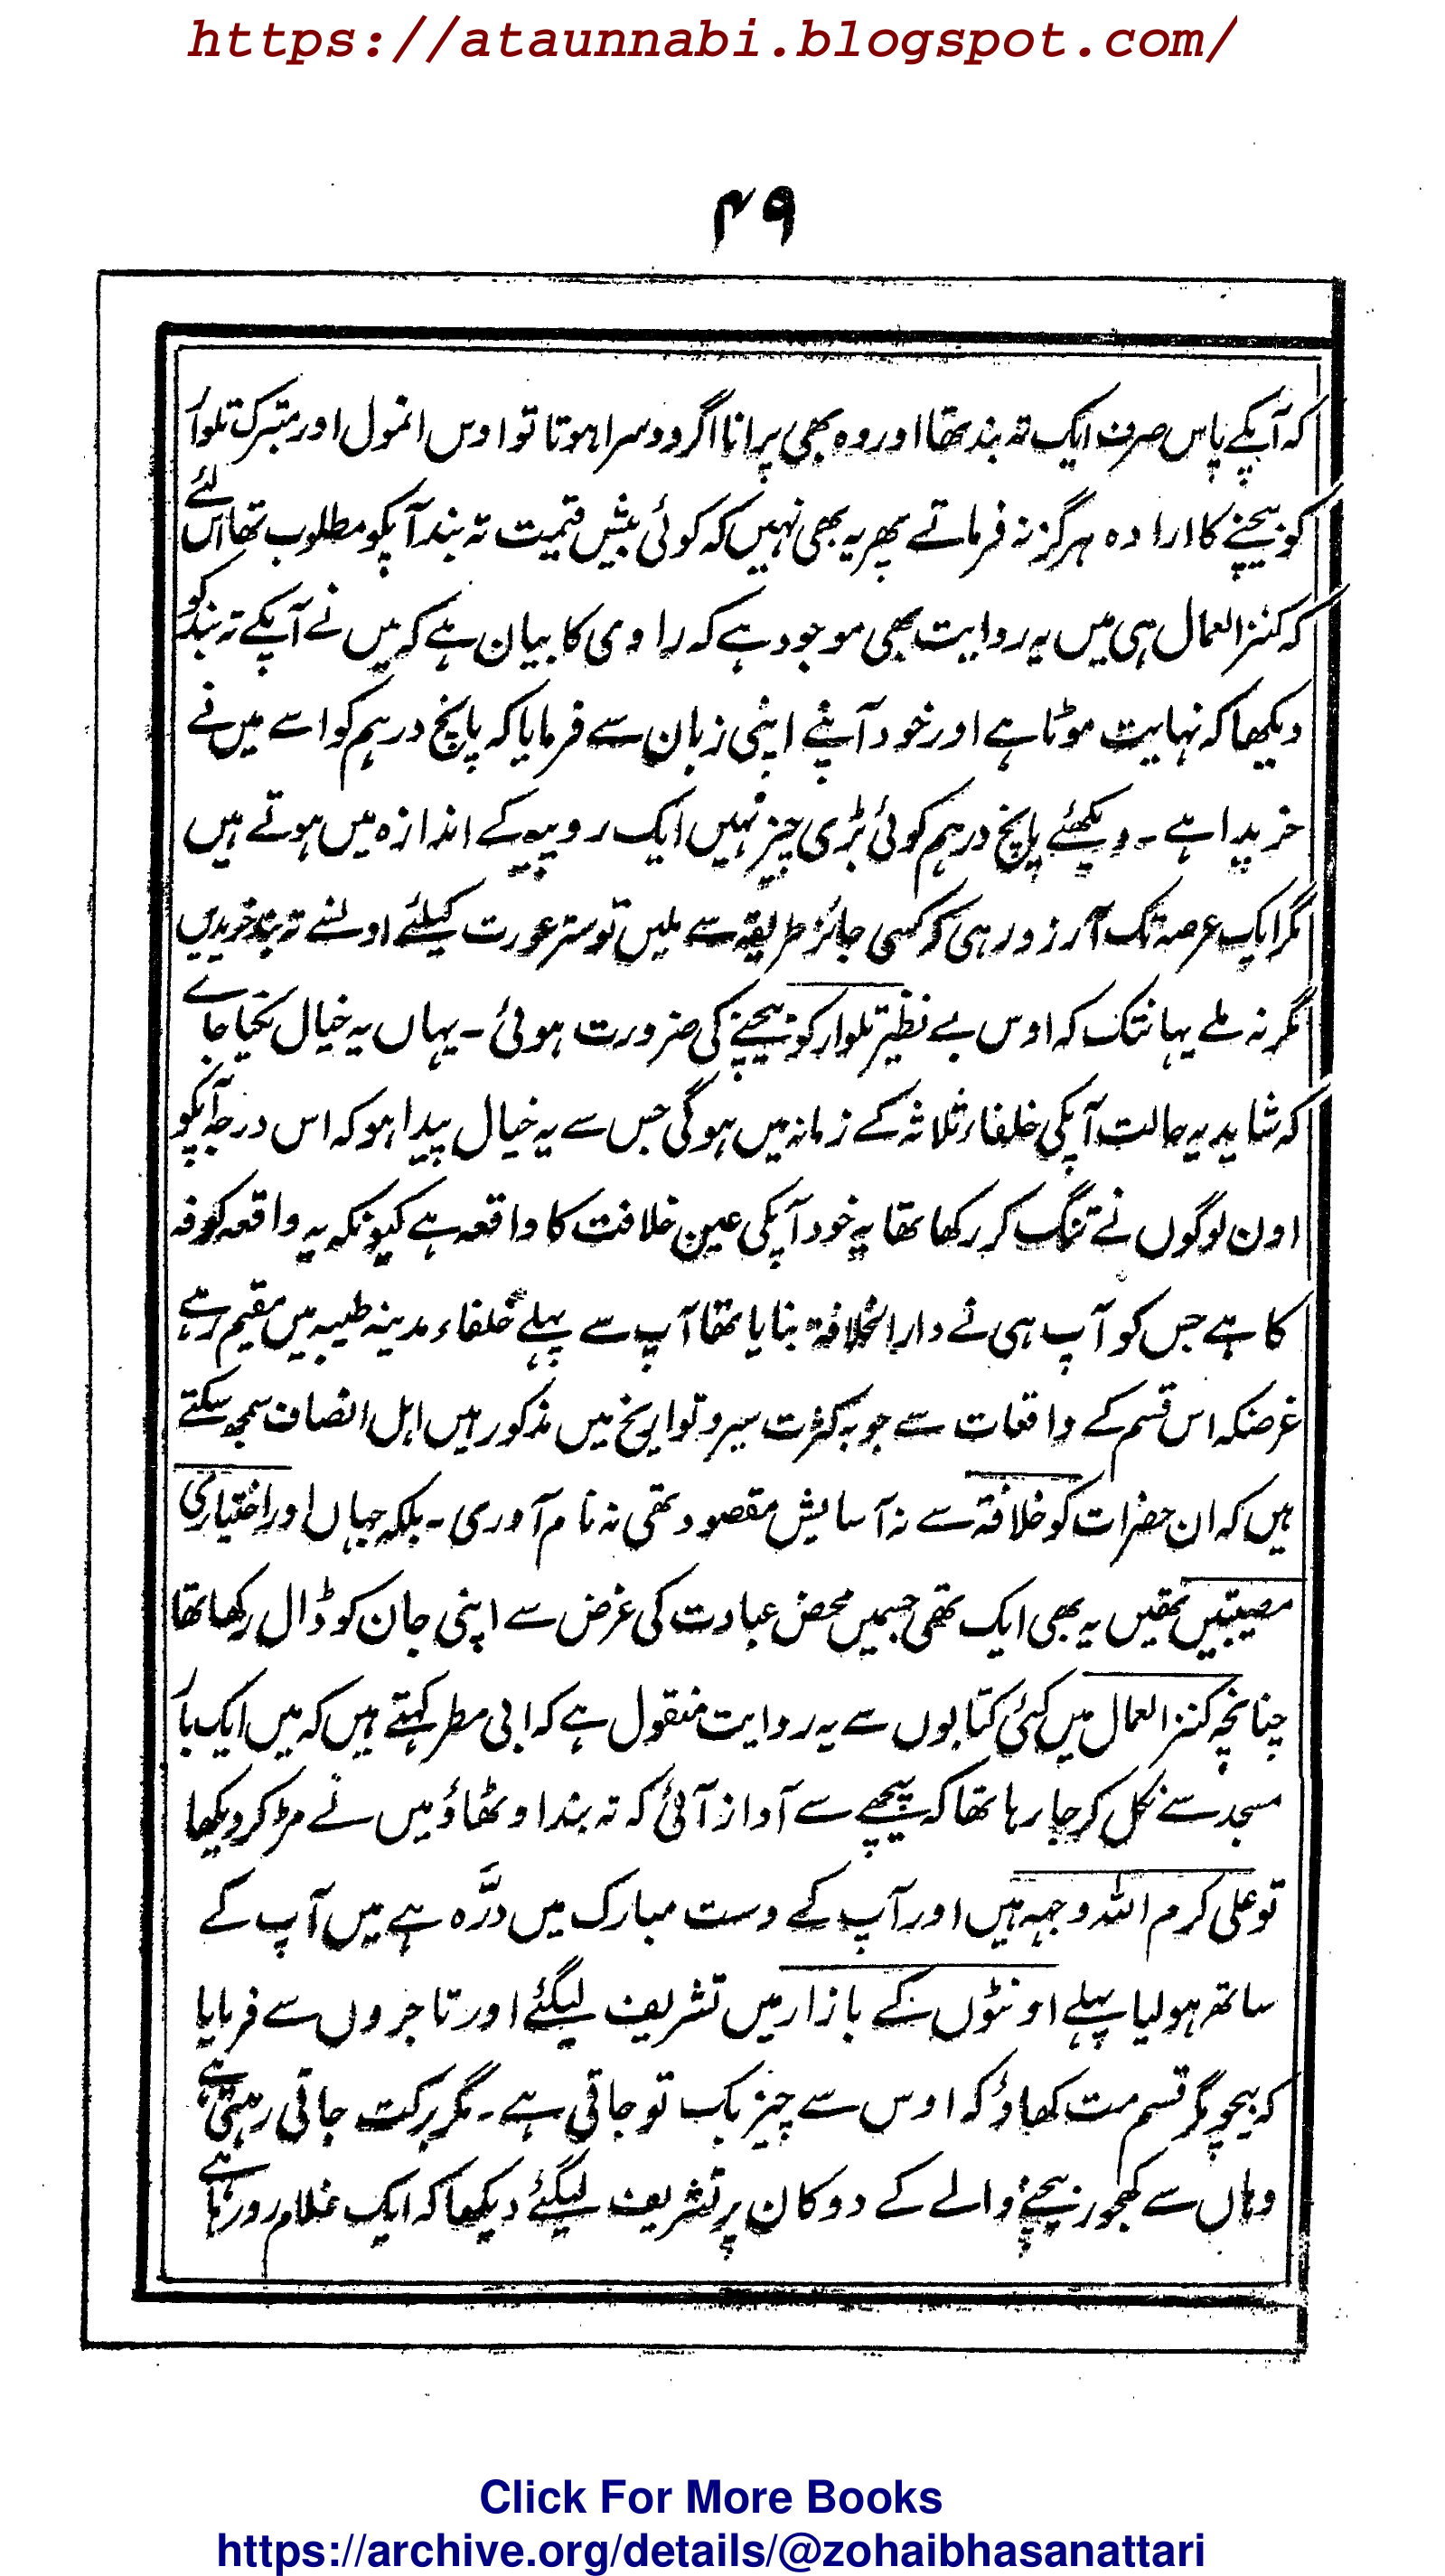 https://ataunnabi.blogspot.com/
۴۹
کہ آپکے پاس صرف ایک تہ بند تھا اور وہ بھی پرانا اگر دوسرا ہوتا تو اوس انمول اور متبرک تلوار
کو بیچنے کا ارادہ ہرگز نہ فرماتے پھر یہ بھی نہیں کہ کوئی بیش قیمت تہ بند آپکو مطلوب تھا اس لئے
کہ کنز العمال ہی میں یہ روایت بھی موجود ہے کہ راوی کا بیان ہے کہ میں نے آپکے تہ بند کو
دیکھا کہ نہایت موٹا ہے اور خود آپنے اپنی زبان سے فرمایا کہ پانچ درہم کو اسے میں نے
خریدا ہے ۔ دیکھئے پانچ درہم کوئی بڑی چیز نہیں ایک روپیہ کے اندازہ میں ہوتے ہیں
مگر ایک عرصہ تک آرزو رہی کہ کسی جائز طریقہ سے ملیں تو ستر عورت کیلئے اونسے تہ بند خریدیں
مگر نہ ملے یہانتک کہ اوس بے نظیر تلوار کو بیچنے کی ضرورت ہوئی ۔ یہاں یہ خیال نکیا جاے
کہ شاید یہ حالت آپکی خلفاء ثلاثہ کے زمانہ میں ہوگی جس سے یہ خیال پیدا ہو کہ اس درجہ آپکو
اون لوگوں نے تنگ کر رکھا تھا یہ خود آپکی عین خلافت کا واقعہ ہے کیونکہ یہ واقعہ کوفہ
کا ہے جس کو آپ ہی نے دار الخلافۃ بنایا تھا آپ سے پہلے خلفاء مدینہ طیبہ میں مقیم رہے
غرضکہ اس قسم کے واقعات سے جو بہ کثرت سیر و تواریخ میں مذکور ہیں اہل انصاف سمجھ سکتے
ہیں کہ ان حضرات کو خلافۃ سے نہ آسایش مقصود تھی نہ نام آوری ۔ بلکہ جہاں اور اختیاری
مصیبتیں تھیں یہ بھی ایک تھی جسمیں محض عبادت کی غرض سے اپنی جان کو ڈال رکھا تھا
چنانچہ کنز العمال میں کئی کتابوں سے یہ روایت منقول ہے کہ ابی مطر کہتے ہیں کہ میں ایک بار
مسجد سے نکل کر جا رہا تھا کہ پیچھے سے آواز آئی کہ تہ بند اوٹھاؤ میں نے مڑ کر دیکھا
تو علی کرم اللہ وجہہ ہیں اور آپ کے دست مبارک میں درَّہ ہے میں آپ کے
ساتھ ہولیا پہلے اونٹوں کے بازار میں تشریف لیگئے اور تاجروں سے فرمایا
کہ بیچو مگر قسم مت کھاؤ کہ اوس سے چیز بک تو جاتی ہے ۔ مگر برکت جاتی رہتی ہے
وہاں سے کھجور بیچنے والے کے دوکان پر تشریف لیگئے دیکھا کہ ایک غلام رو رہا ہے
Click For More Books
https://archive.org/details/@zohaibhasanattari